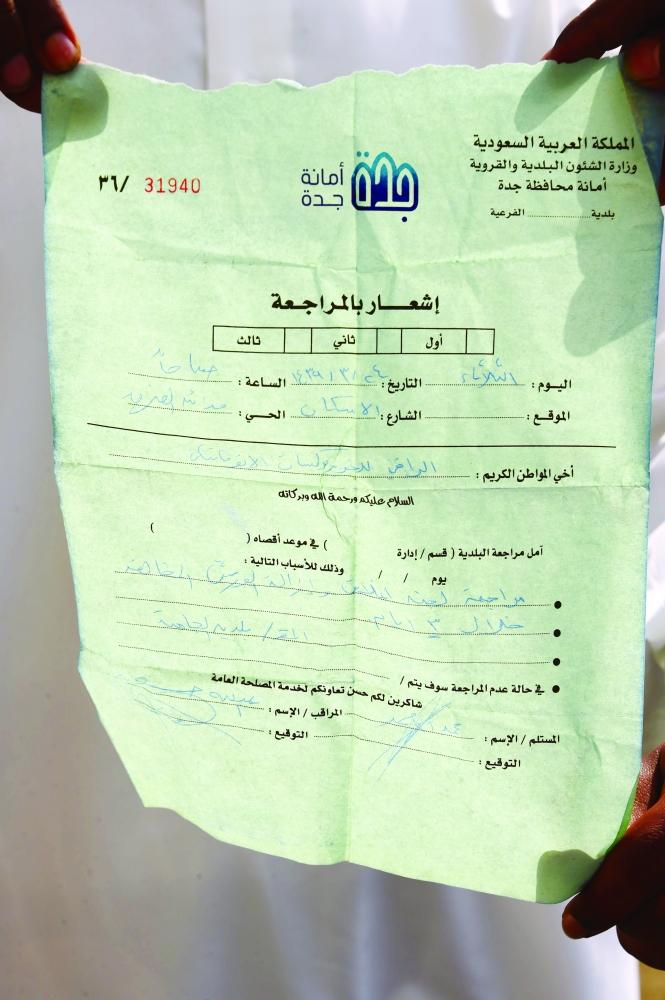 المملكة العربية السعودية
وزارة الشئون البلدية والقروية
أمانة محافظة جدة
بلدية ............ الفرعية
أمانة جدة
جدة
٣٦/ 31940
إشعار بالمراجعة
أول ثاني ثالث
اليوم : الثلاثاء التاريخ : الساعة : صباحاً
الموقع : الشارع : الاسكان الحي :
أخي المواطن الكريم :
السلام عليكم ورحمة الله وبركاته
آمل مراجعة البلدية ( قسم / إدارة ) في موعد أقصاه ( )
يوم / / وذلك للأسباب التالية :
مراجعة لجنة
خلال ٣ ايام بلدية الجامعة
في حالة عدم المراجعة سوف يتم /
شاكرين لكم حسن تعاونكم لخدمة المصلحة العامة
المستلم / الإسم : المراقب / الإسم :
التوقيع : التوقيع :